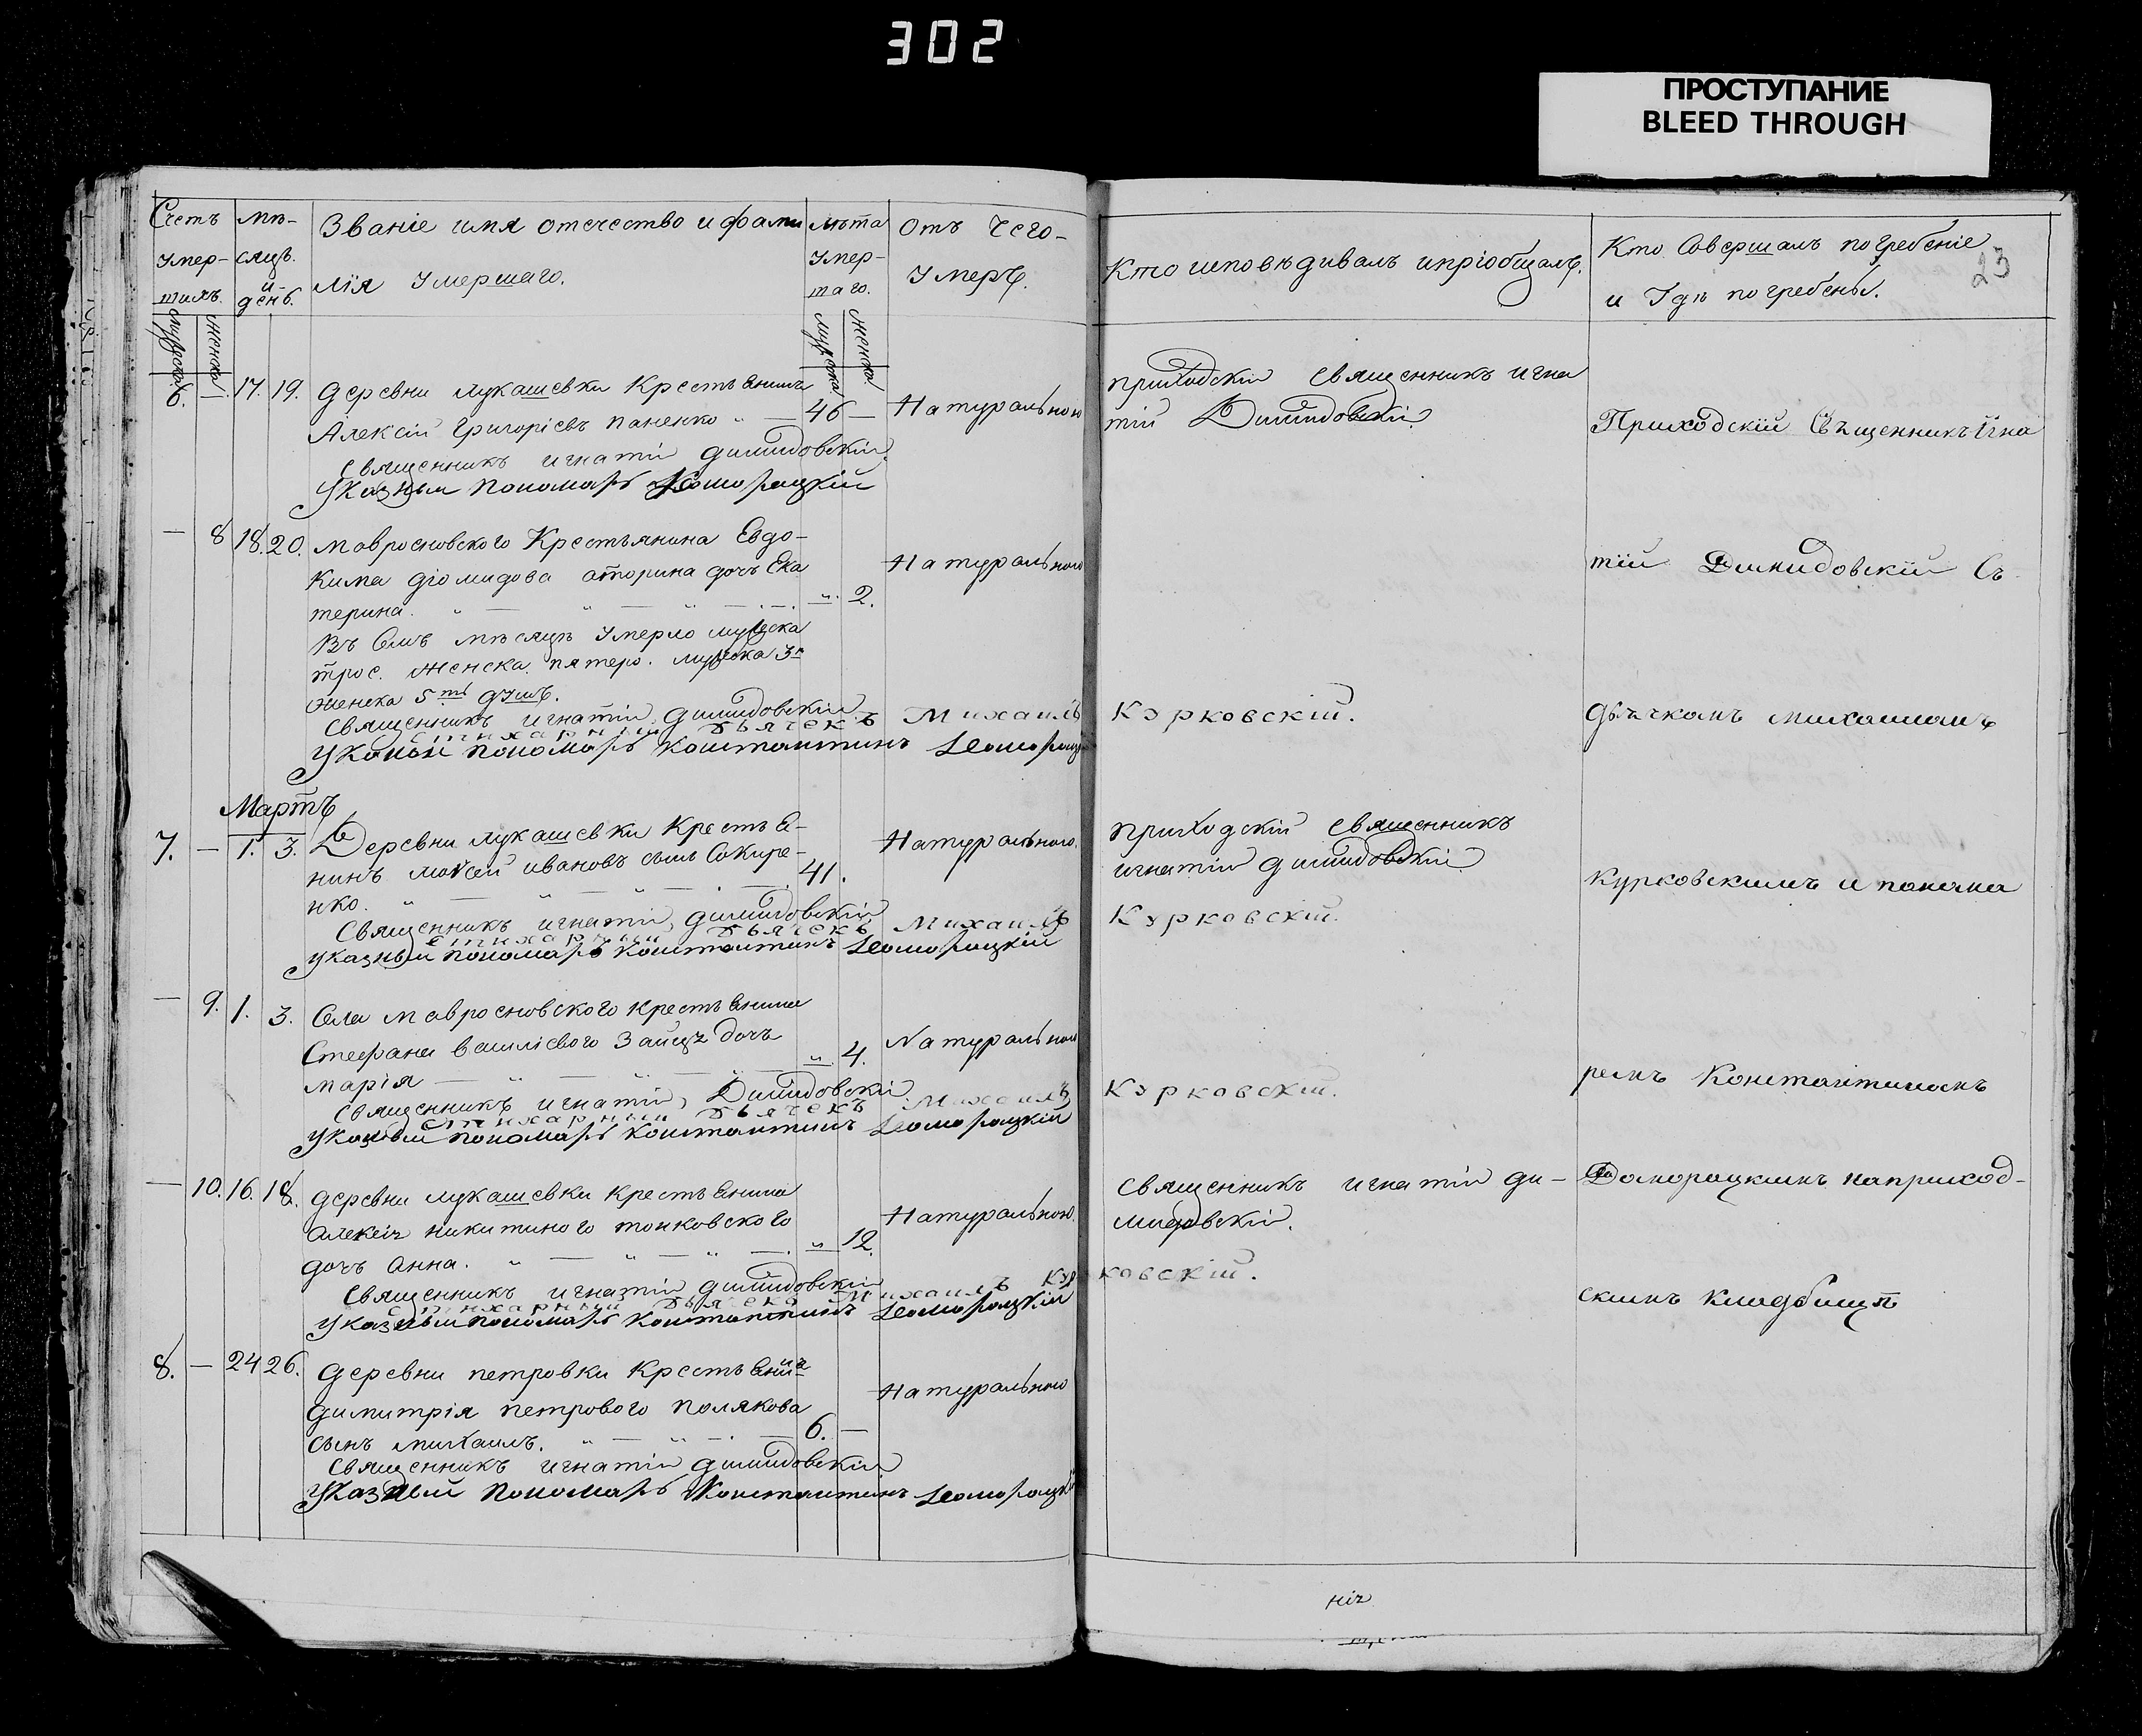 302
ПРОСТУПАНИЕ
BLEED THROUGH
23
Счетъ
Умер-
шихъ.
Мужеска
Женска
мѣ-
сяцъ.
и
день.
Званіе имя отечество и фами
лія Умершаго.
лѣта
Умер-
шаго.
Мужеска
Женска
Отъ Чего-
Умеръ.
Кто исповѣдивалъ ипріобщалъ.
Кто Совершалъ погребеніе
и Где погребены.
6. — 17. 19. деревни лукашевки Крестьенинъ
Алексій Григоріевъ паненко — 46 — Натуральною
священникъ игнатій димидовскій
Указный Пономарь Доморацкій
приходскій священникъ игна
тій Димидовскій.
Приходскій Священникъ Игна
— 8 18. 20. мавросновского Крестьянина Евдо-
кима діомидова дочь Ека
терина. — 2. Натуральною
Въ семъ мѣсяцѣ Умерло мужеска
трое. женска пятеро. мужеска 3е
женска 5ть душъ.
священникъ игнатій димидовскій
стихарный дьячекъ Михаилъ Курковскій.
Указный пономарь Константинъ Доморацкій
тій Димидовскій Съ
дьячкомъ михаиломъ
Мартъ
7. — 1. 3. Деревни лукашевки Крестье-
нинъ мойсей ивановъ сынъ Сокире-
нко. 41. Натуральною.
священникъ игнатій димидовскій
стихарный дьячекъ Михаилъ Курковскій.
указный пономарь Константинъ Доморацкій
приходскій священникъ
игнатій димидовскій
Курковскимъ и понома
— 9. 1. 3. Села мавросновского крестьенина
Стефана василіевого Зайца дочь
марія — 4. Натуральною
священникъ игнатій Димидовскій
стихарный дьячекъ Михаилъ Курковскій.
Указный пономарь Константинъ Доморацкій
ремъ Константиномъ
— 10. 16. 18. деревни лукашевки крестьенина
никитиного
дочь анна. — 12. Натуральною.
священникъ игнатій димидовскій
стихарный дьячекъ Михаилъ Курковскій.
Указный пономарь Константинъ Доморацкій
священникъ игнатій ди-
мидовскій.
Доморацкимъ наприход-
скимъ кладбищѣ
8. — 24 26. деревни петровки Крестьенина
димитрія петрового полякова
сынъ михаилъ. 6. — Натуральною
священникъ игнатій димидовскій
Указный Пономарь Константинъ Доморацкій